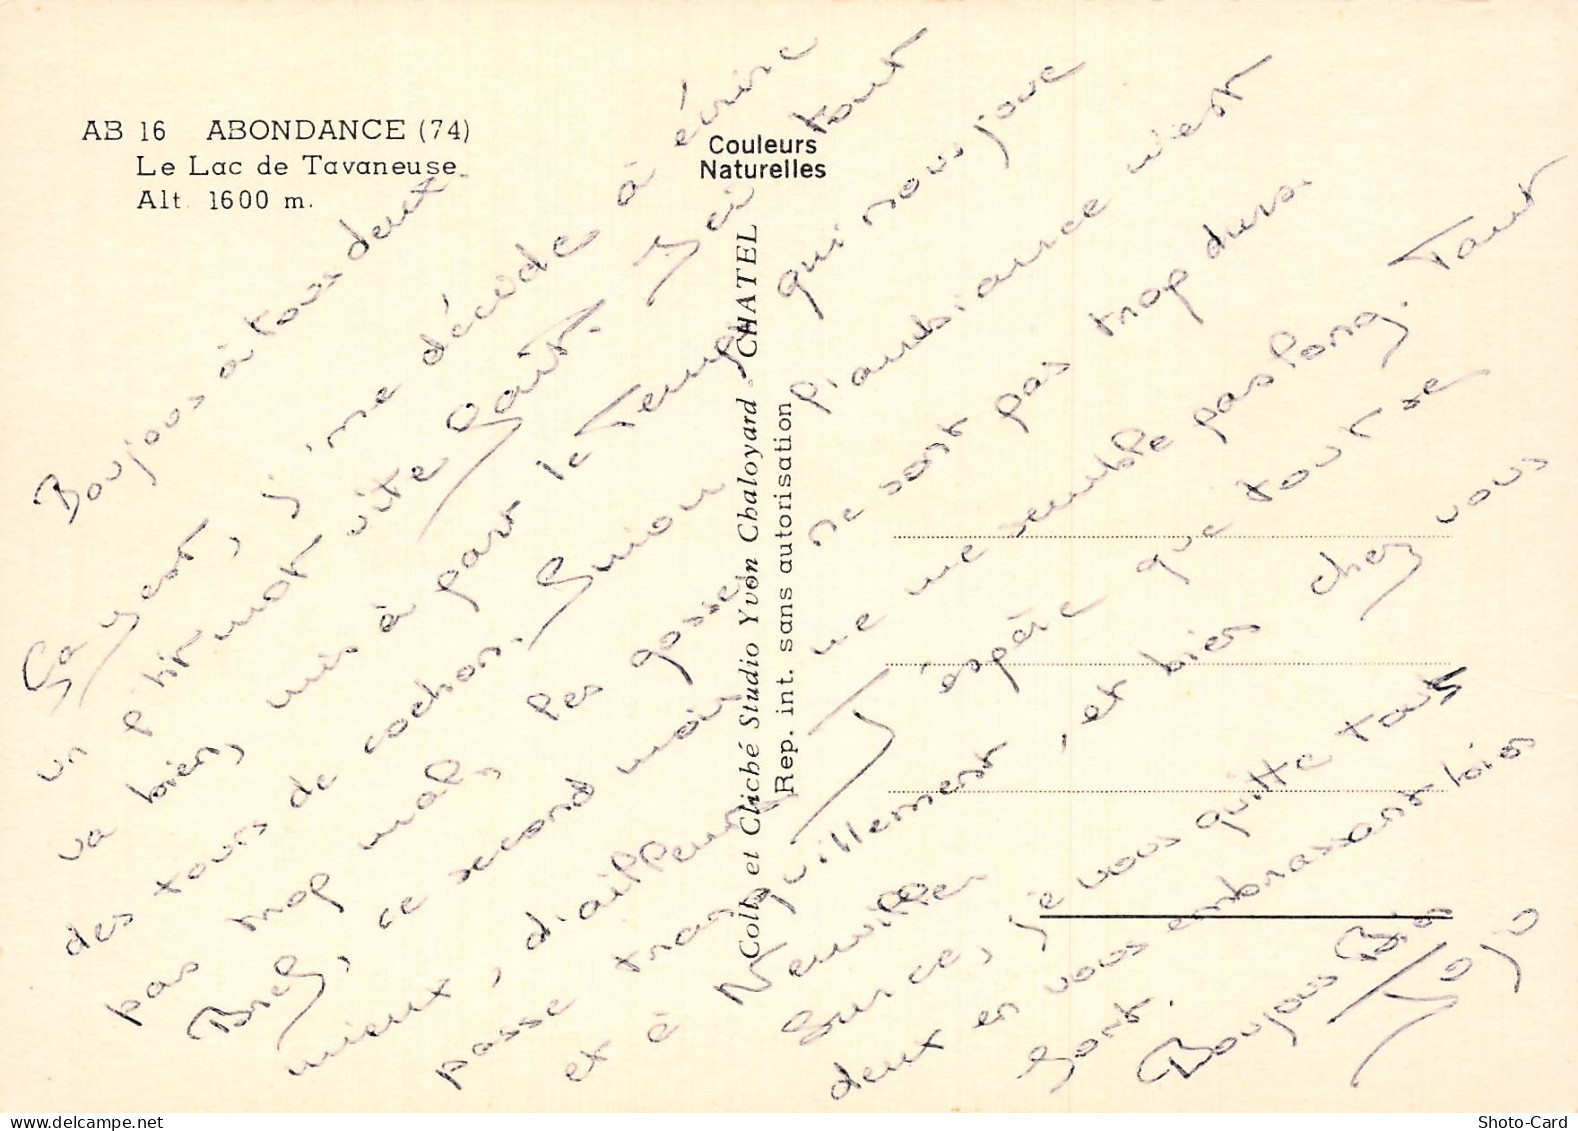 AB 16 ABONDANCE (74)
Le Lac de Tavaneuse
Alt. 1600 m.
Couleurs
Naturelles
Coll. et Cliché Studio Yvon Chaloyard - CHATEL
Rep. int. sans autorisation
Boujous à tous deux.
Ça yest, j'me décède à écrire
un p'tit mot vite fait. Ici tout
va bien, mis à part le Temps qui nous joue
des tours de cochon. Sinon l'ambiance n'est
pas trop mal, les gosses ne sont pas trop durs.
Bref, ce second mois ne me semble pas long. Tant
mieux, d'ailleurs. J'espère que tout se
passe tranquillement, et bien chez vous
et à Neuviller
Sur ce, j'e vous quitte tous
deux en vous embrassant bien
fort.
Boujous Bien
Jojo
Shoto-Card